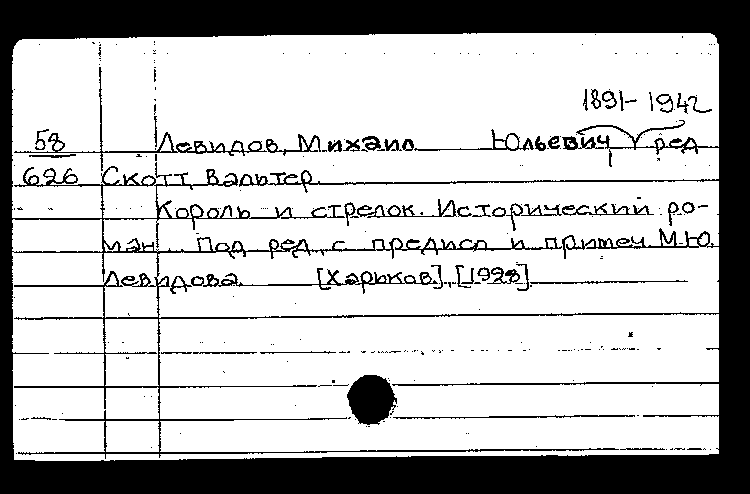 1891-1942
58 Левидов, Михаил Юльевич, ред
626 Скотт, Вальтер.
Король и стрелок. Исторический ро-
ман. Под ред., с предисл и примеч М.Ю.
Левидова. [Харьков], [1928]